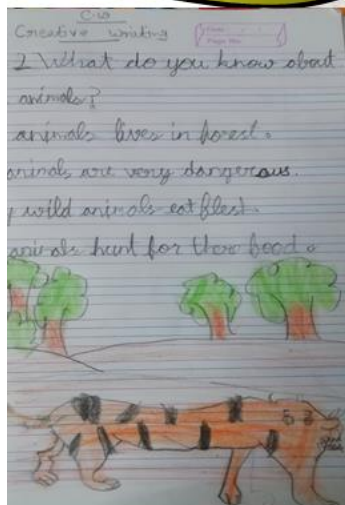 C.W
Creative writing
What do you know about
animals?
animals lives in forest.
animals are very dangerous.
wild animals eat flesh.
animals hunt for there food.